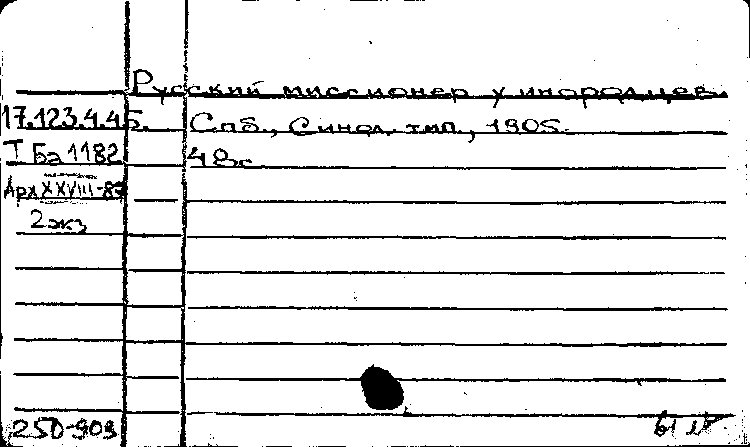 Русский миссионер у инородцев.
17.123.4.45. Спб., Синод. тип., 1905.
Т Ба 1182 48с
Арх XXVIII-87
2 экз
250-903